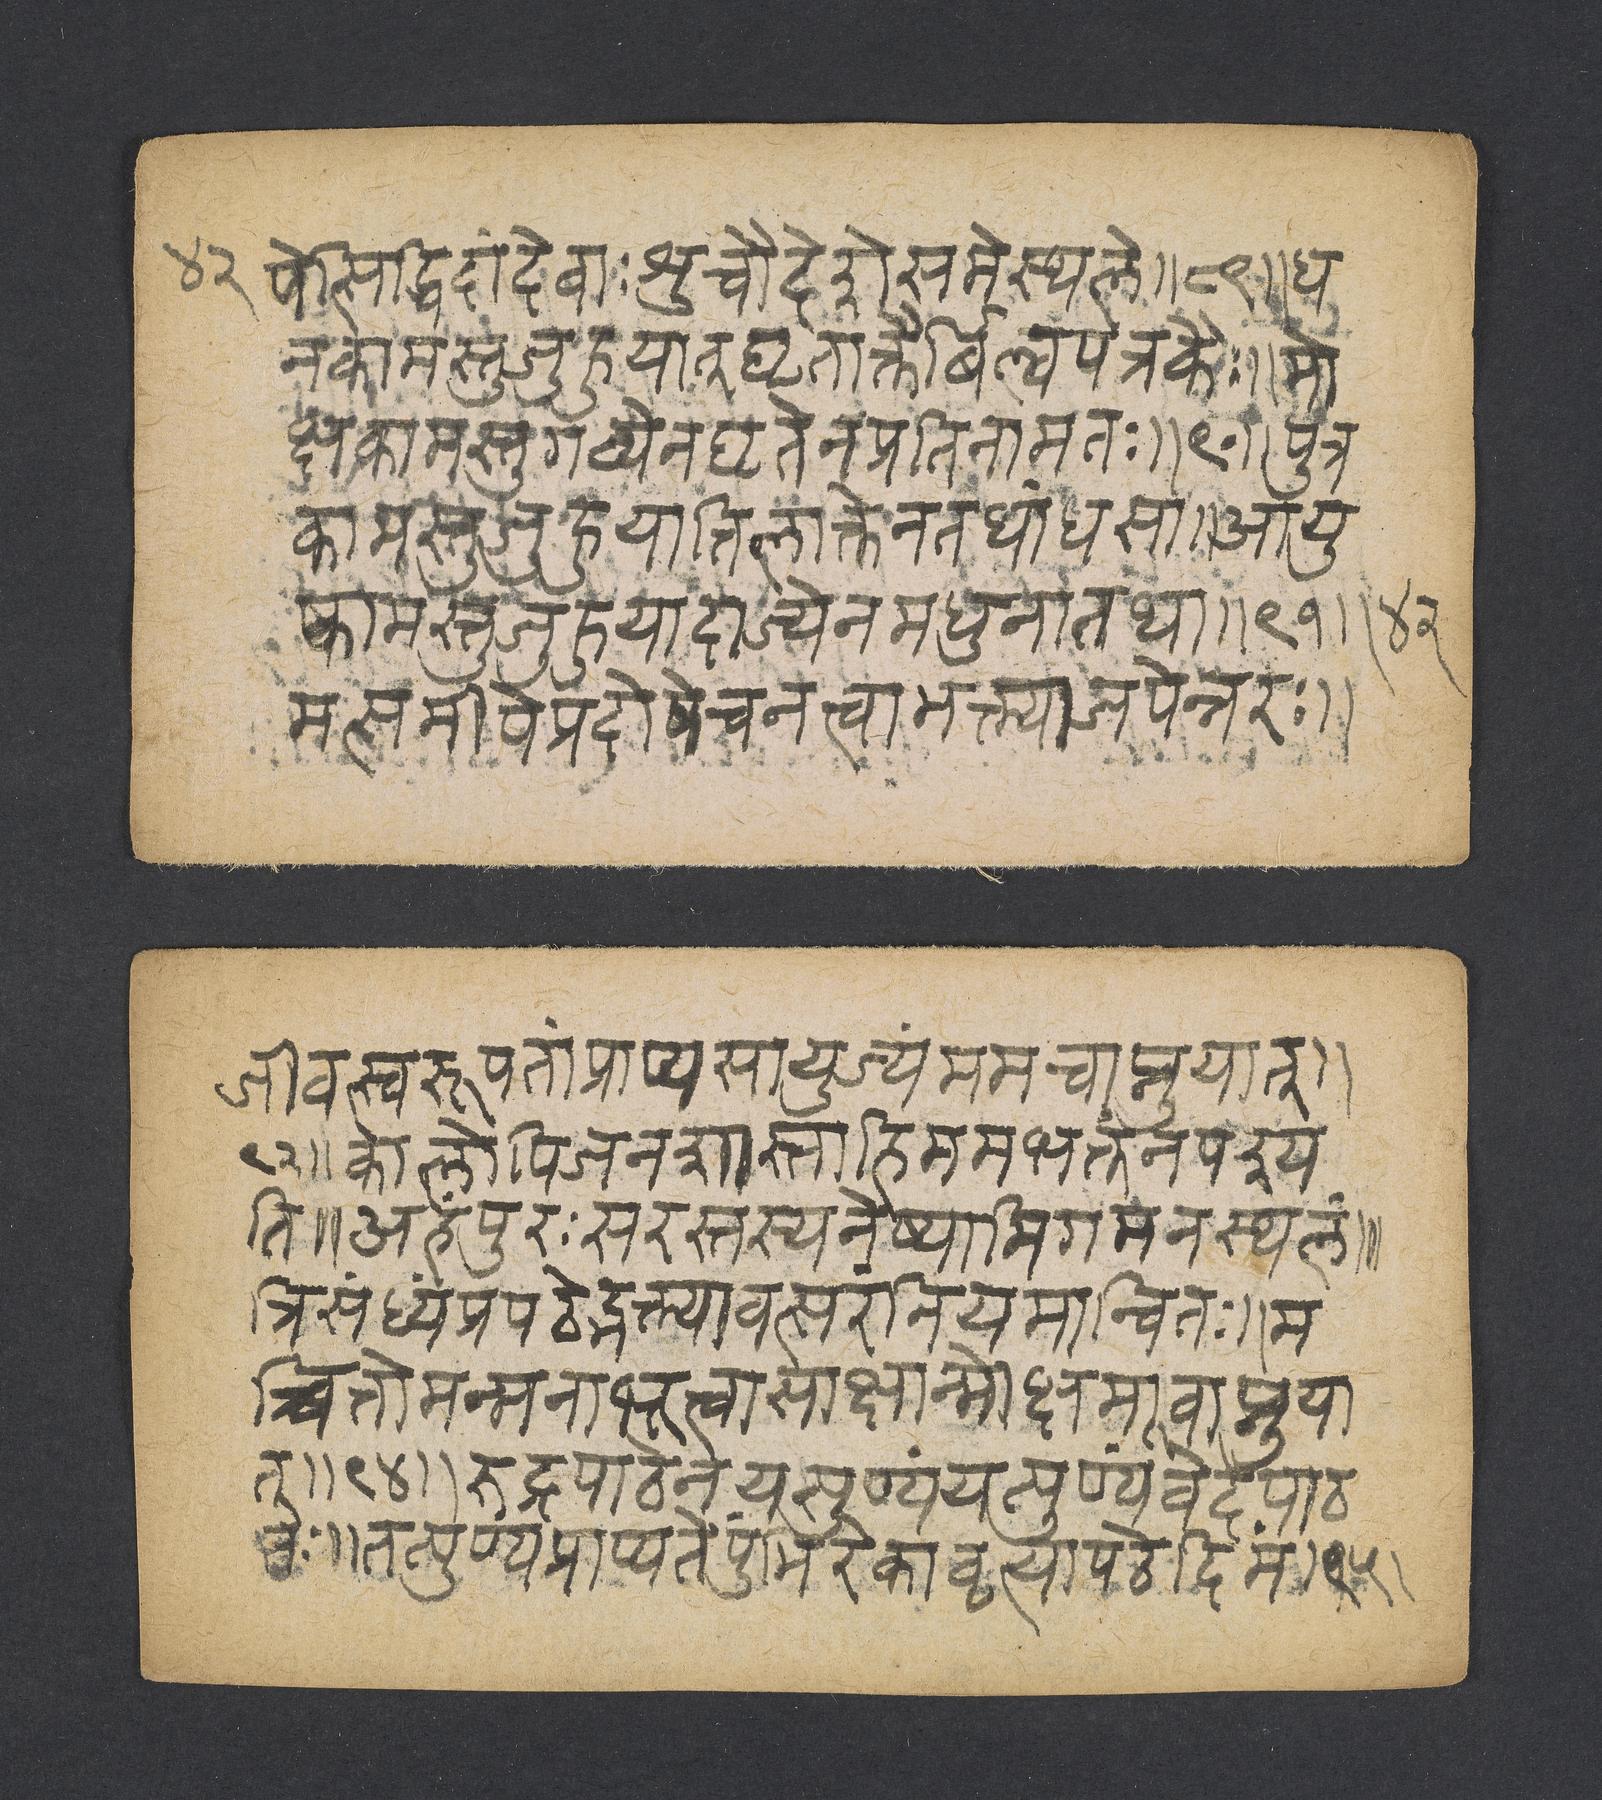 ४२ पेत्सिद्धिदां देवाः श्रुचौ देशे समे स्थले॥८९॥ध
नकामस्तु जुहुयात् घृताक्तैर्बिल्वपत्रकैः॥मो
क्षकामस्तु गव्येन घृतेन प्रतिनामतः॥९०॥पुत्र
कामस्तु जुहुयात्तिलाक्तेन तथांधसा॥आयु
ष्कामस्तु जुहुयादाज्येन मधुना तथा॥९१॥ ४२
मत्समीपे प्रदोषे च नत्वा भक्त्या जपेन्नरः॥
जीवत्स्वरूपतां प्राप्य सायुज्यं मम चाप्नुयात्॥
९२॥कालोपि जनशास्ता हि मम भक्तं न पश्य
ति॥अहं पुरःसरस्तस्य नेष्यामि गमनस्थलं॥
त्रिसंध्यं प्रपठेद्भक्त्या वत्सरं नियमान्वितः॥म
च्चित्तो मन्मना भूत्वा साक्षान्मोक्षमवाप्नुया
त्॥९४॥रुद्रपाठेन यत्पुण्यं यत्पुण्यं वेदपाठ
तः॥तत्पुण्यं प्राप्यते पुंभिरेकावृत्या पठेदिमं।९५।